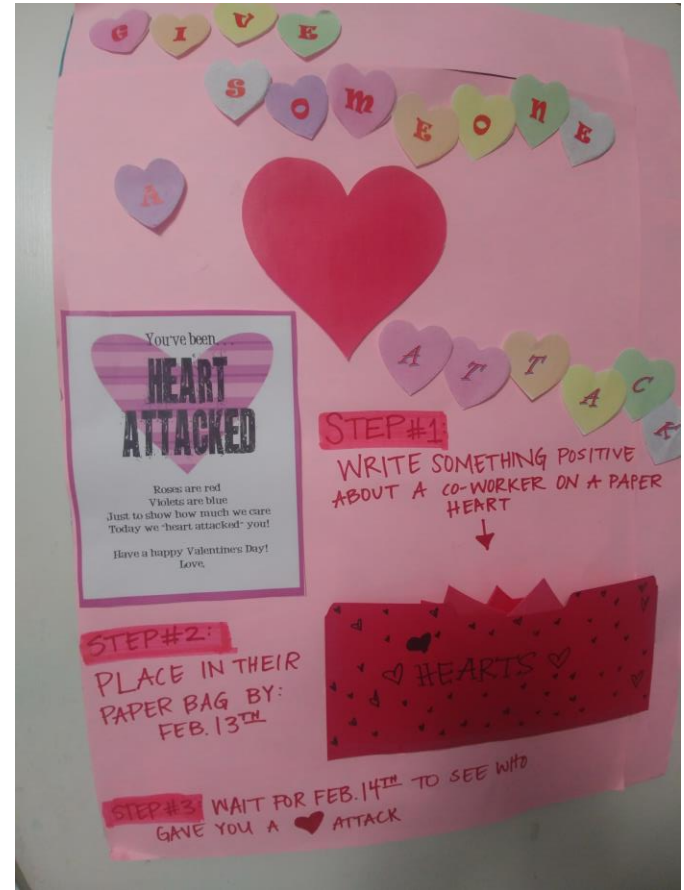 GIVE
SOMEONE
A
ATTACK
You've been...
HEART
ATTACKED
Roses are red
Violets are blue
Just to show how much we care
Today we "heart attacked" you!
Have a happy Valentine's Day!
Love,
STEP #1:
WRITE SOMETHING POSITIVE
ABOUT A CO-WORKER ON A PAPER
HEART
HEARTS
STEP #2:
PLACE IN THEIR
PAPER BAG BY:
FEB. 13TH
STEP #3: WAIT FOR FEB. 14TH TO SEE WHO
GAVE YOU A ♥ ATTACK